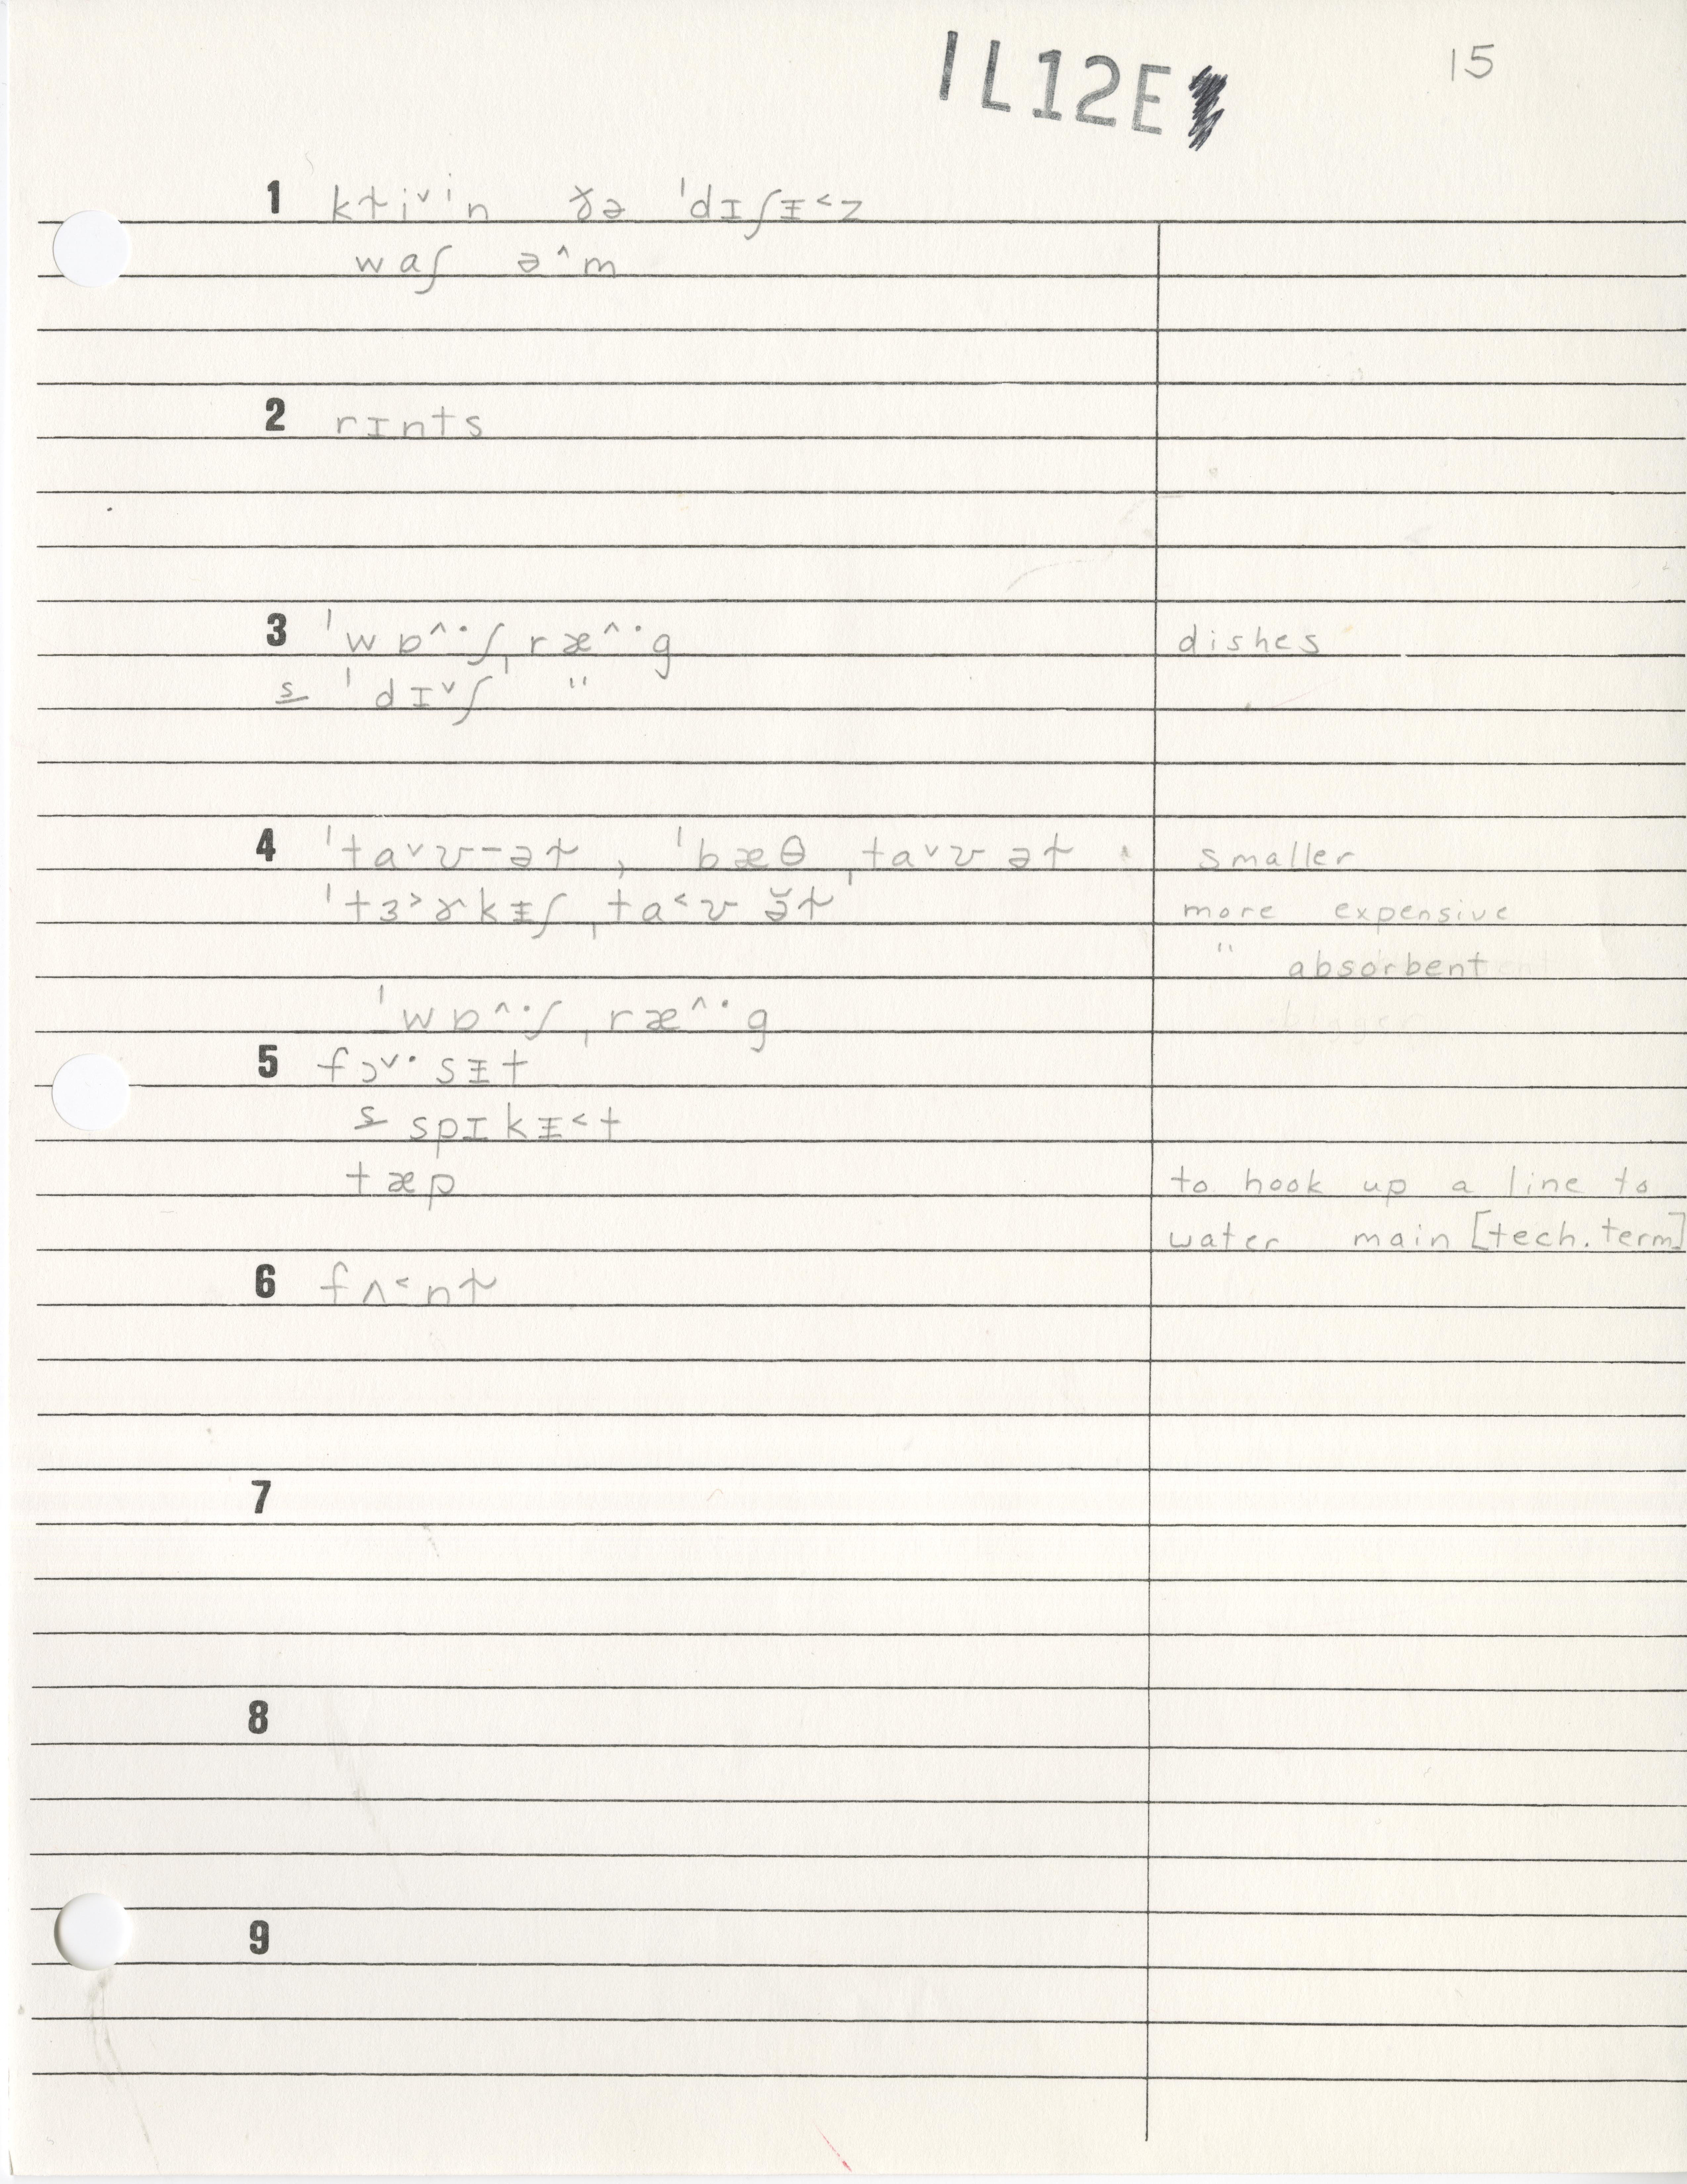 1L12E
15
1 kɫiᵛˈn ðə ˈdɪʃᵻ˂z
waʃ ə˄m
2 rɪnts
3 ˈwɒ˄·ʃˌræ˄·g dishes
s ˈdɪ˅ʃ "
4 ˈta˅ʊ-əɫ, ˈbæθˌta˅ʊəɫ smaller
ˈtɜ˃ɚkᵻʃˌta˂ʊə̆ɫ more expensive
" absorbent
ˈwɒ˄·ʃˌræ˄·g
5 fɔ˅·sᵻt
s spɪkᵻ˂t
tæp to hook up a line to
water main [tech. term]
6 fʌ˂nɫ
7
8
9